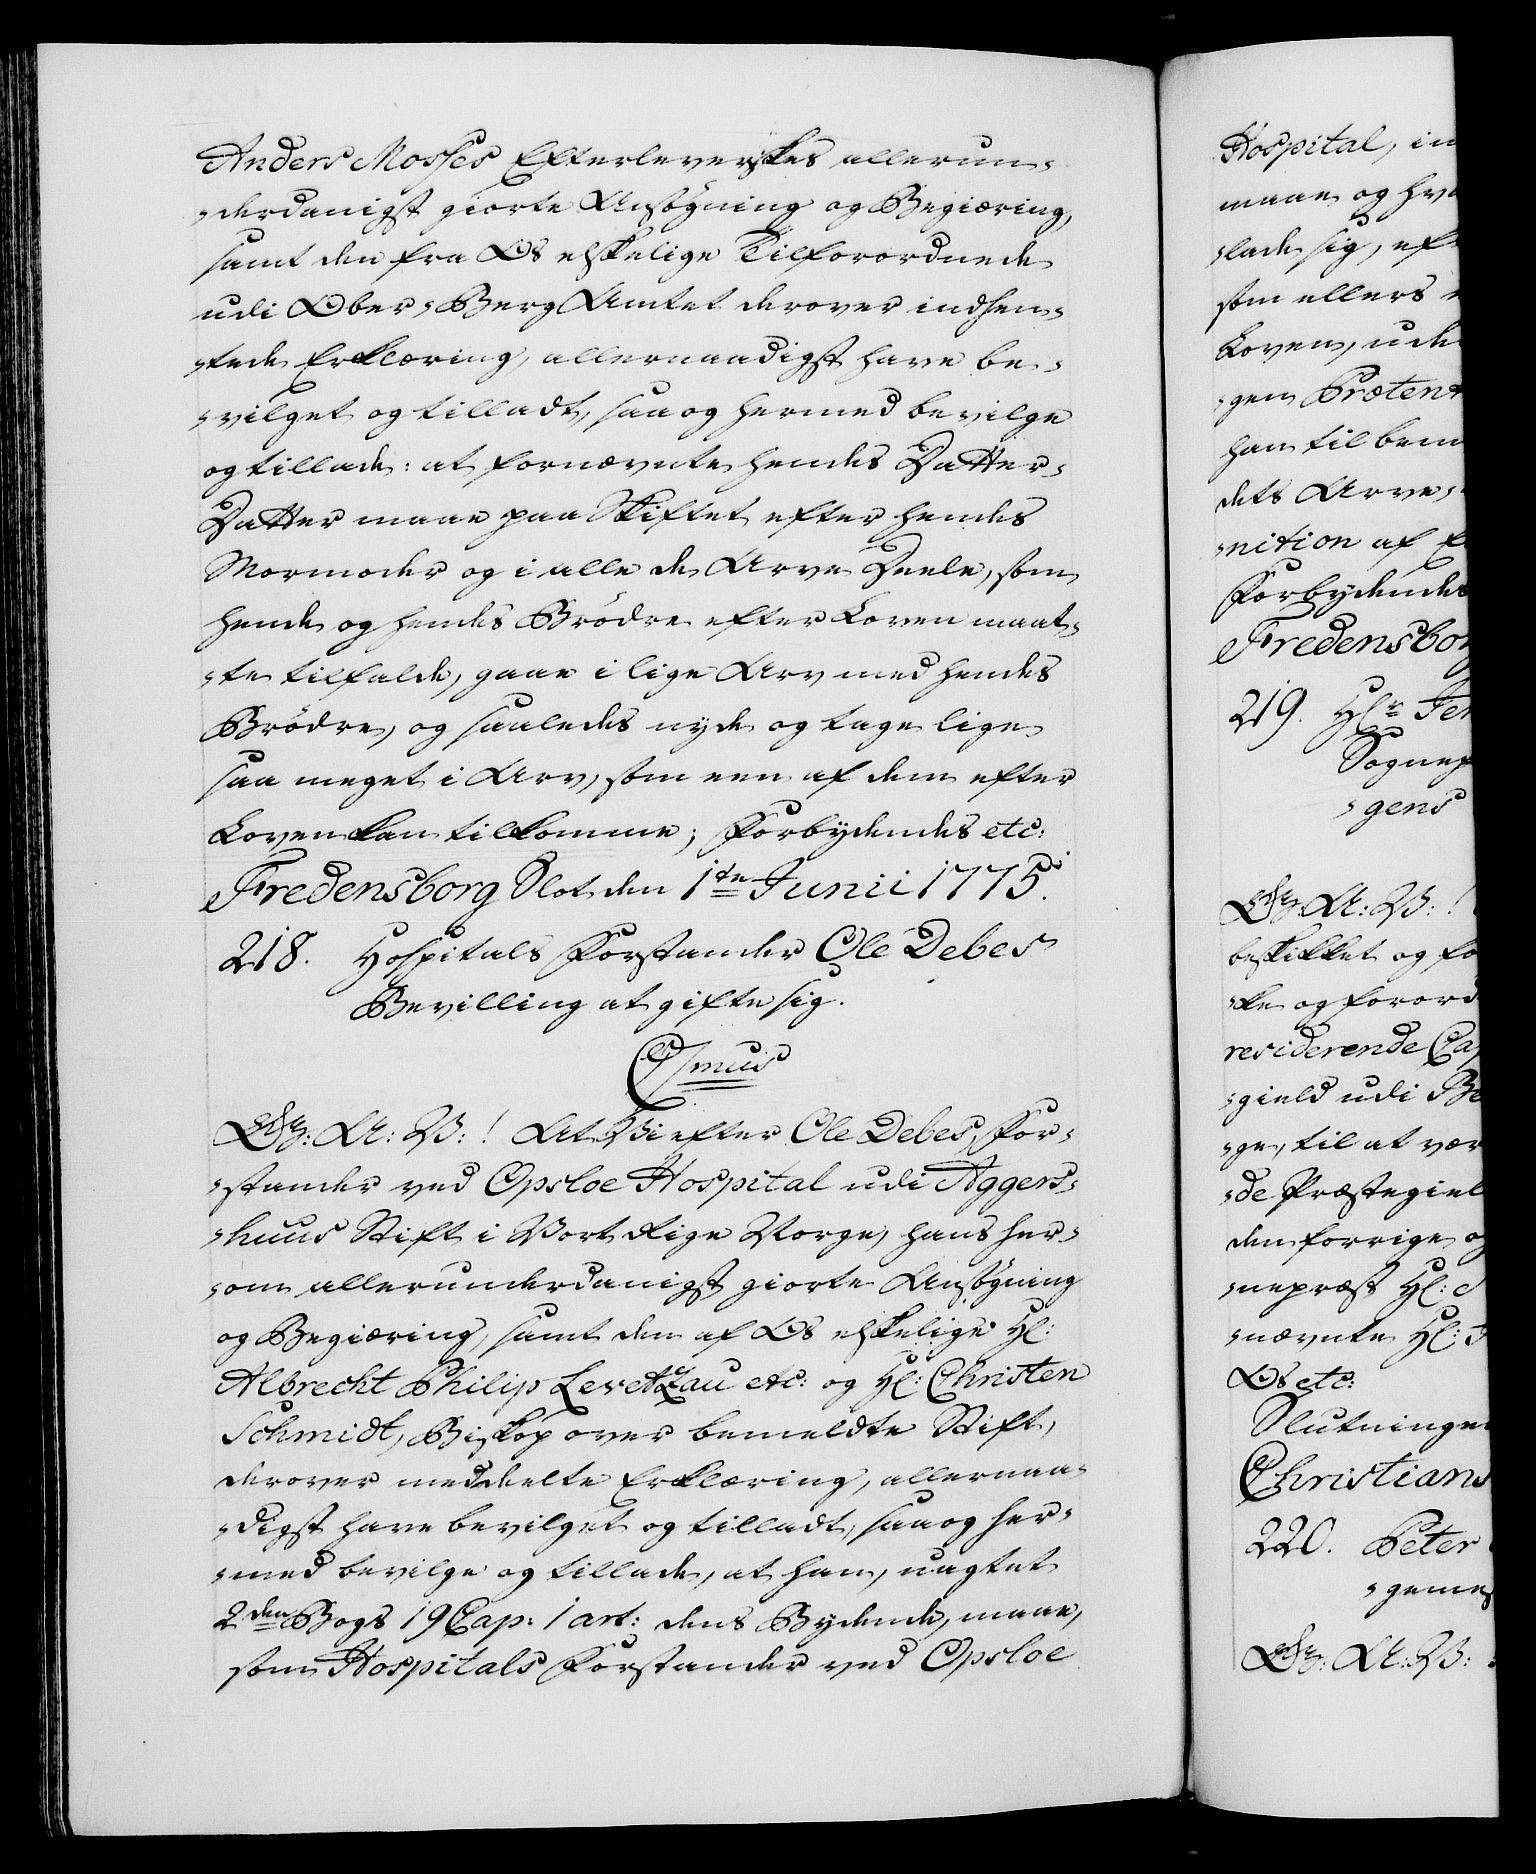 Anders Mosses Efterleverskes allerun-
-derdanigst giorte Ansøgning og Begiæring,
samt den fra Os elskelige Tilforordnede
udi Ober-Berg Amtet derover indhen-
-tede Erklæring, allernaadigst have be-
-vilget og tilladt, saa og hermed bevilge
og tillade: at fornævnte hendes Datter-
Datter maae paa Skiftet efter hendes
Mormoder og i alle de Arve Deele, som
hende og hendes Brödre efter Loven maat-
-te tilfalde, gaae i lige Arv med hendes
Brödre, og saaledes nyde og tage lige
saa meget i Arv, som een af dem efter
Loven kan tilkomme; Forbydendes etc:
Fredensborg Slot den 1te Junii 1775.
218. Hospitals Forstander Ole Debes
Bevilling at gifte sig.
Csmus
C7: A: V:! At Vi efter Ole Debes, For-
-stander ved Opsloe Hospital udi Aggers-
-huus Stift i Vort Rige Norge, hans her-
-om allerunderdanigst giorte Ansøgning
og Begiæring, samt den af Os elskelige Hl:
Albrecht Philip Levetzau etc: og Hl: Christen
Schmidt, Biskop over bemeldte Stift,
derover meddeelte Erklæring, allernaa-
-digst have bevilget og tilladt, saa og her-
-med bevilge og tillade, at han, uagtet
2den Bogs 19 Cap: 1 art: dens Bydende, maae,
som Hospitals Forstander ved Opsloe
Hospital, in
maae og hv
-lade sig, ef
som ellers
Loven, ude
-gen Prætent
han til bem
dets Arve-
-nition af
Forbydendes
Fredensborg
219. Hlr Jen
Sognep
-gens
C7: A: V:!
beskikket og fo
-ke og forord
residerende Cap
-gield udi Be
-ge, til at vær
-de Præstegiel
den forrige og
-nepræst Hl:
-nævnte Hl:
Os etc:
Slutningen
Christians
220. Peter
-gemes
C7: A: V: